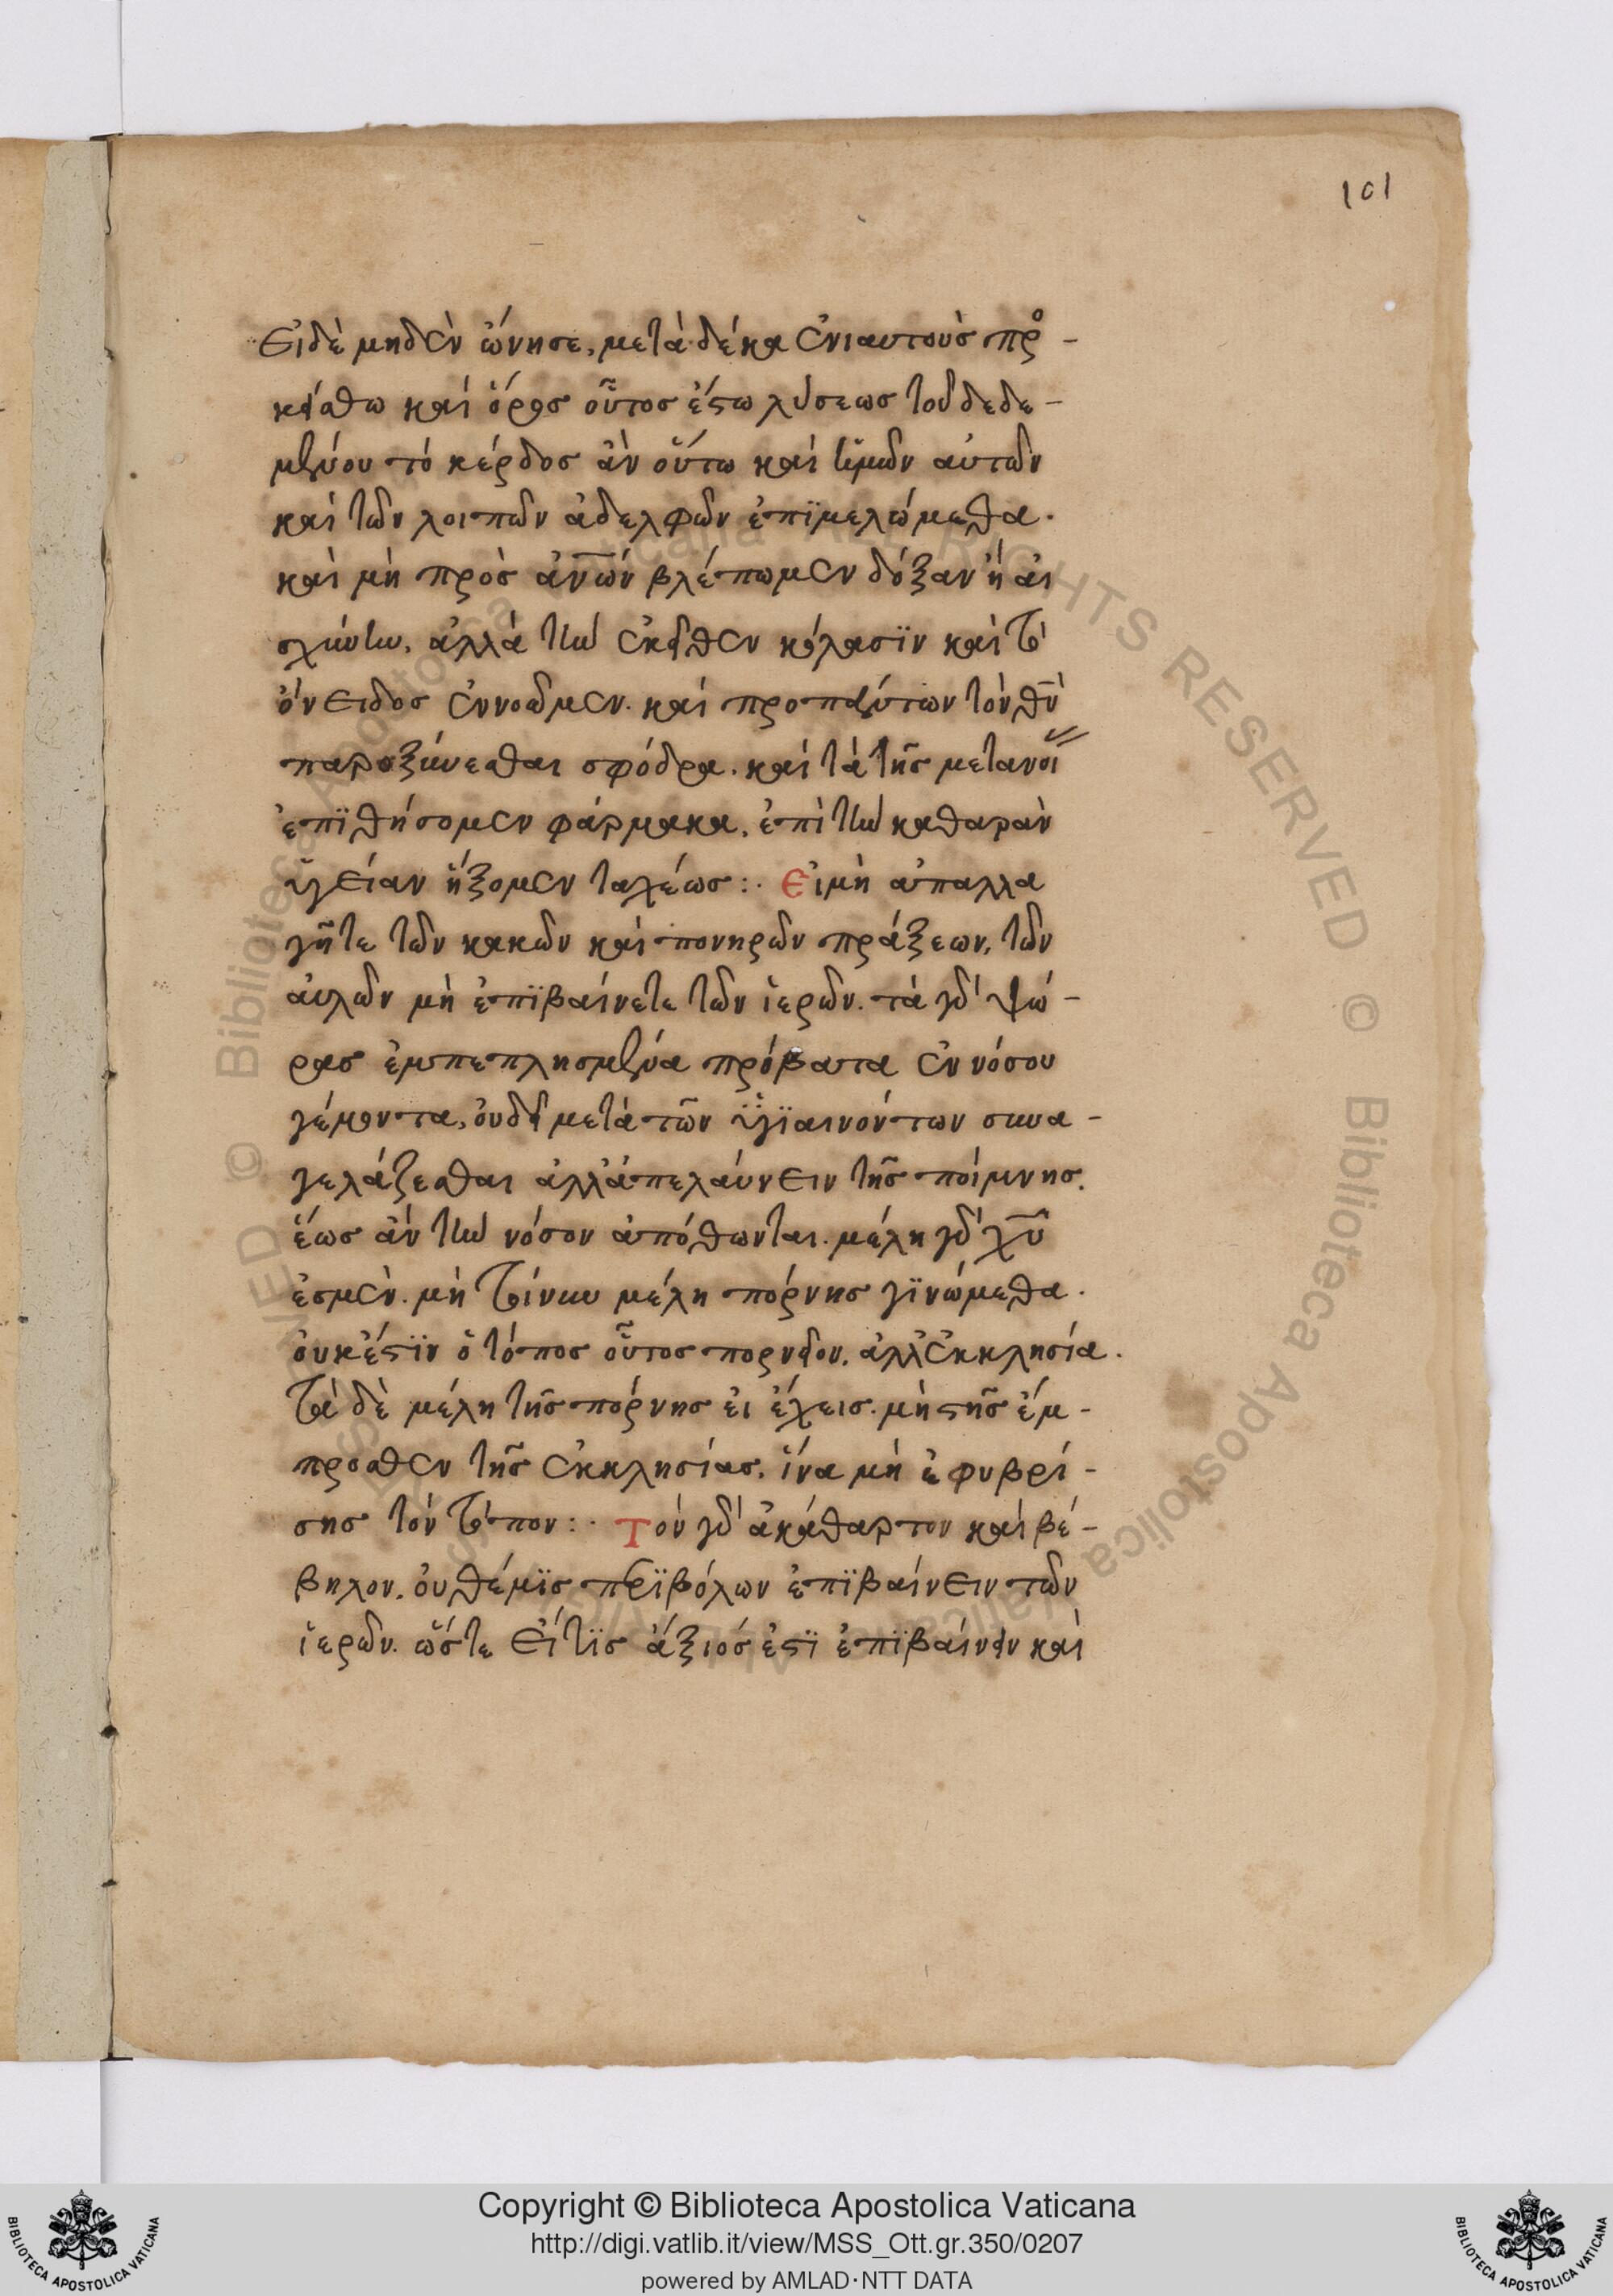 101
Εἰδὲ μηδὲν ὤνησε, μετὰ δέκα ἐνιαυτοὺς προ -
κείσθω καὶ ὅρος οὗτος ἔστω λύσεως τοῦ δεδε -
μένου τὸ κέρδος ἂν οὕτω καὶ ἡμῶν αὐτῶν
καὶ τῶν λοιπῶν ἀδελφῶν ἐπϊμελώμεθα.
καὶ μὴ πρὸς ἀνῶν βλέπωμεν δόξαν ἢ αἰ
σχύνην, ἀλλὰ τὴν ἐκεῖθεν κόλασϊν καὶ τὸ
ὄνειδος ἐννοῶμεν. καὶ προπάντων τὸν θν
παροξύνεσθαι σφόδρα. καὶ τὰ τῆς μετανοί
ἐπϊθήσομεν φάρμακα, ἐπὶ τὴν καθαρὰν
ὑγείαν ἥξομεν ταχέως :. Εἰμὴ ἀπαλλα
γῆτε τῶν κακῶν καὶ πονηρῶν πράξεων, τῶν
αὐλῶν μὴ ἐπϊβαίνετε τῶν ἱερῶν. τὰ γὰρ ψώ -
ρας ἐμπεπλησμένα πρόβατα ἐν νόσου
γέμοντα, οὐδεῖ μετὰ τῶν ὑγϊαινόντων συνα -
γελάζεσθαι ἀλλἀπελαύνειν τῆς ποίμνης.
ἕως ἂν τὴν νόσον ἀπόθωνται. μέλη γὰρ χυ
ἐσμὲν. μὴ τοίνυν μέλη πόρνης γϊνώμεθα.
οὐκἔστϊν ὁ τόπος οὗτος πορνεῖον. ἀλλἐκκλησία.
Τὰ δὲ μέλη τῆς πόρνης εἰ ἔχεις. μὴ στῆς ἔμ -
προσθεν τῆς ἐκκλησίας. ἵνα μὴ ἐφυβρί -
σης τὸν τόπον :. Τὸν γὰρ ἀκάθαρτον καὶ βέ -
βηλον. οὐ θέμϊς περϊβόλων ἐπϊβαίνειν τῶν
ἱερῶν. ὥστε εἴτϊς ἄξιός ἐστϊ ἐπϊβαίνειν καὶ
Copyright © Biblioteca Apostolica Vaticana
http://digi.vatlib.it/view/MSS_Ott.gr.350/0207
powered by AMLAD·NTT DATA